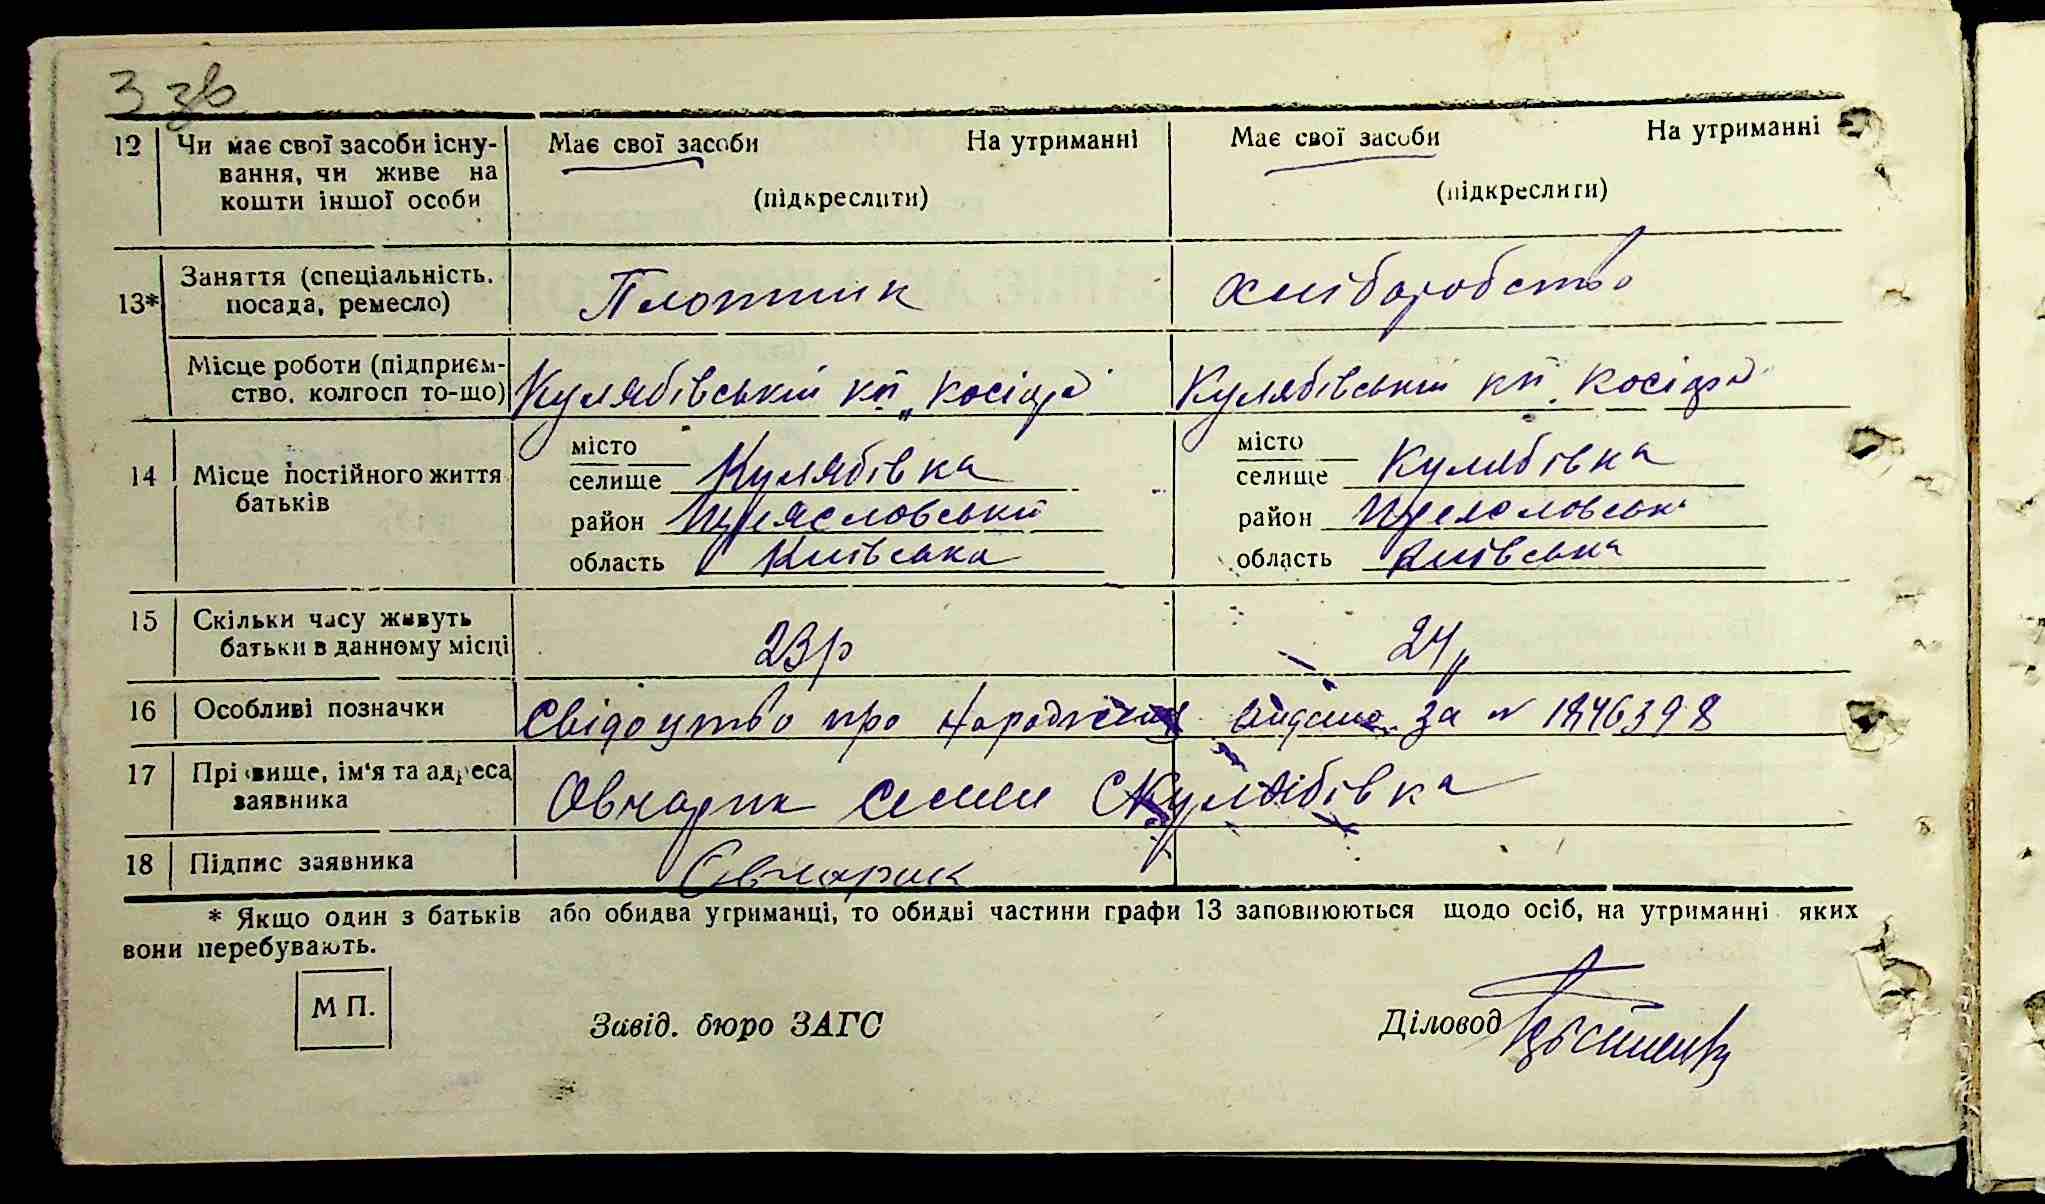 3 зв
12 Чи має свої засоби існу- Має свої засоби На утриманні Має свої засоби На утриманні
вання, чи живе на
кошти іншої особи (підкреслити) (підкреслити)
13* Заняття (спеціальність, посада, ремесло) Плотник Хліборобство
Місце роботи (підприєм-
ство, колгосп то-що) Кулябівський кп „Косіора" Кулябівський кп „Косіора"
14 Місце постійного життя
батьків
місто місто
селище Кулябівка селище Кулябівка
район Переясловський район Переясловський
область Київська область Київська
15 Скільки часу живуть
батьки в данному місці 23р 24р
16 Особливі позначки Свідоцтво про народження видано за № 1846398
17 Прізвище, ім'я та адреса
заявника Овчарик Семен С Кулябівка
18 Підпис заявника Овчарик
* Якщо один з батьків або обидва утриманці, то обидві частини графи 13 заповнюються щодо осіб, на утриманні яких
вони перебувають.
М П.
Завід. бюро ЗАГС Діловод